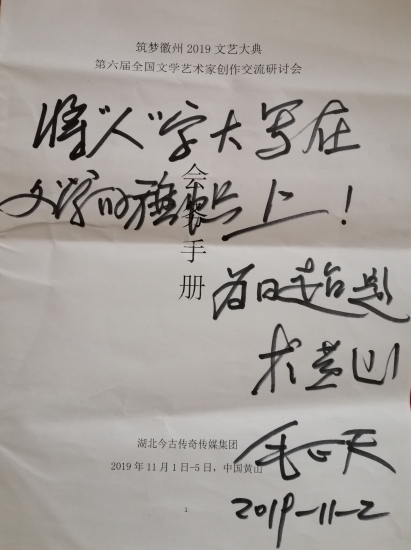 筑梦徽州 2019 文艺大典
第六届全国文学艺术家创作交流研讨会
将“人”字大写在
文学的 上！
会务手册
为 题
于黄山
毛 天
2019-11-2
湖北今古传奇传媒集团
2019 年 11 月 1 日-5 日，中国黄山
1